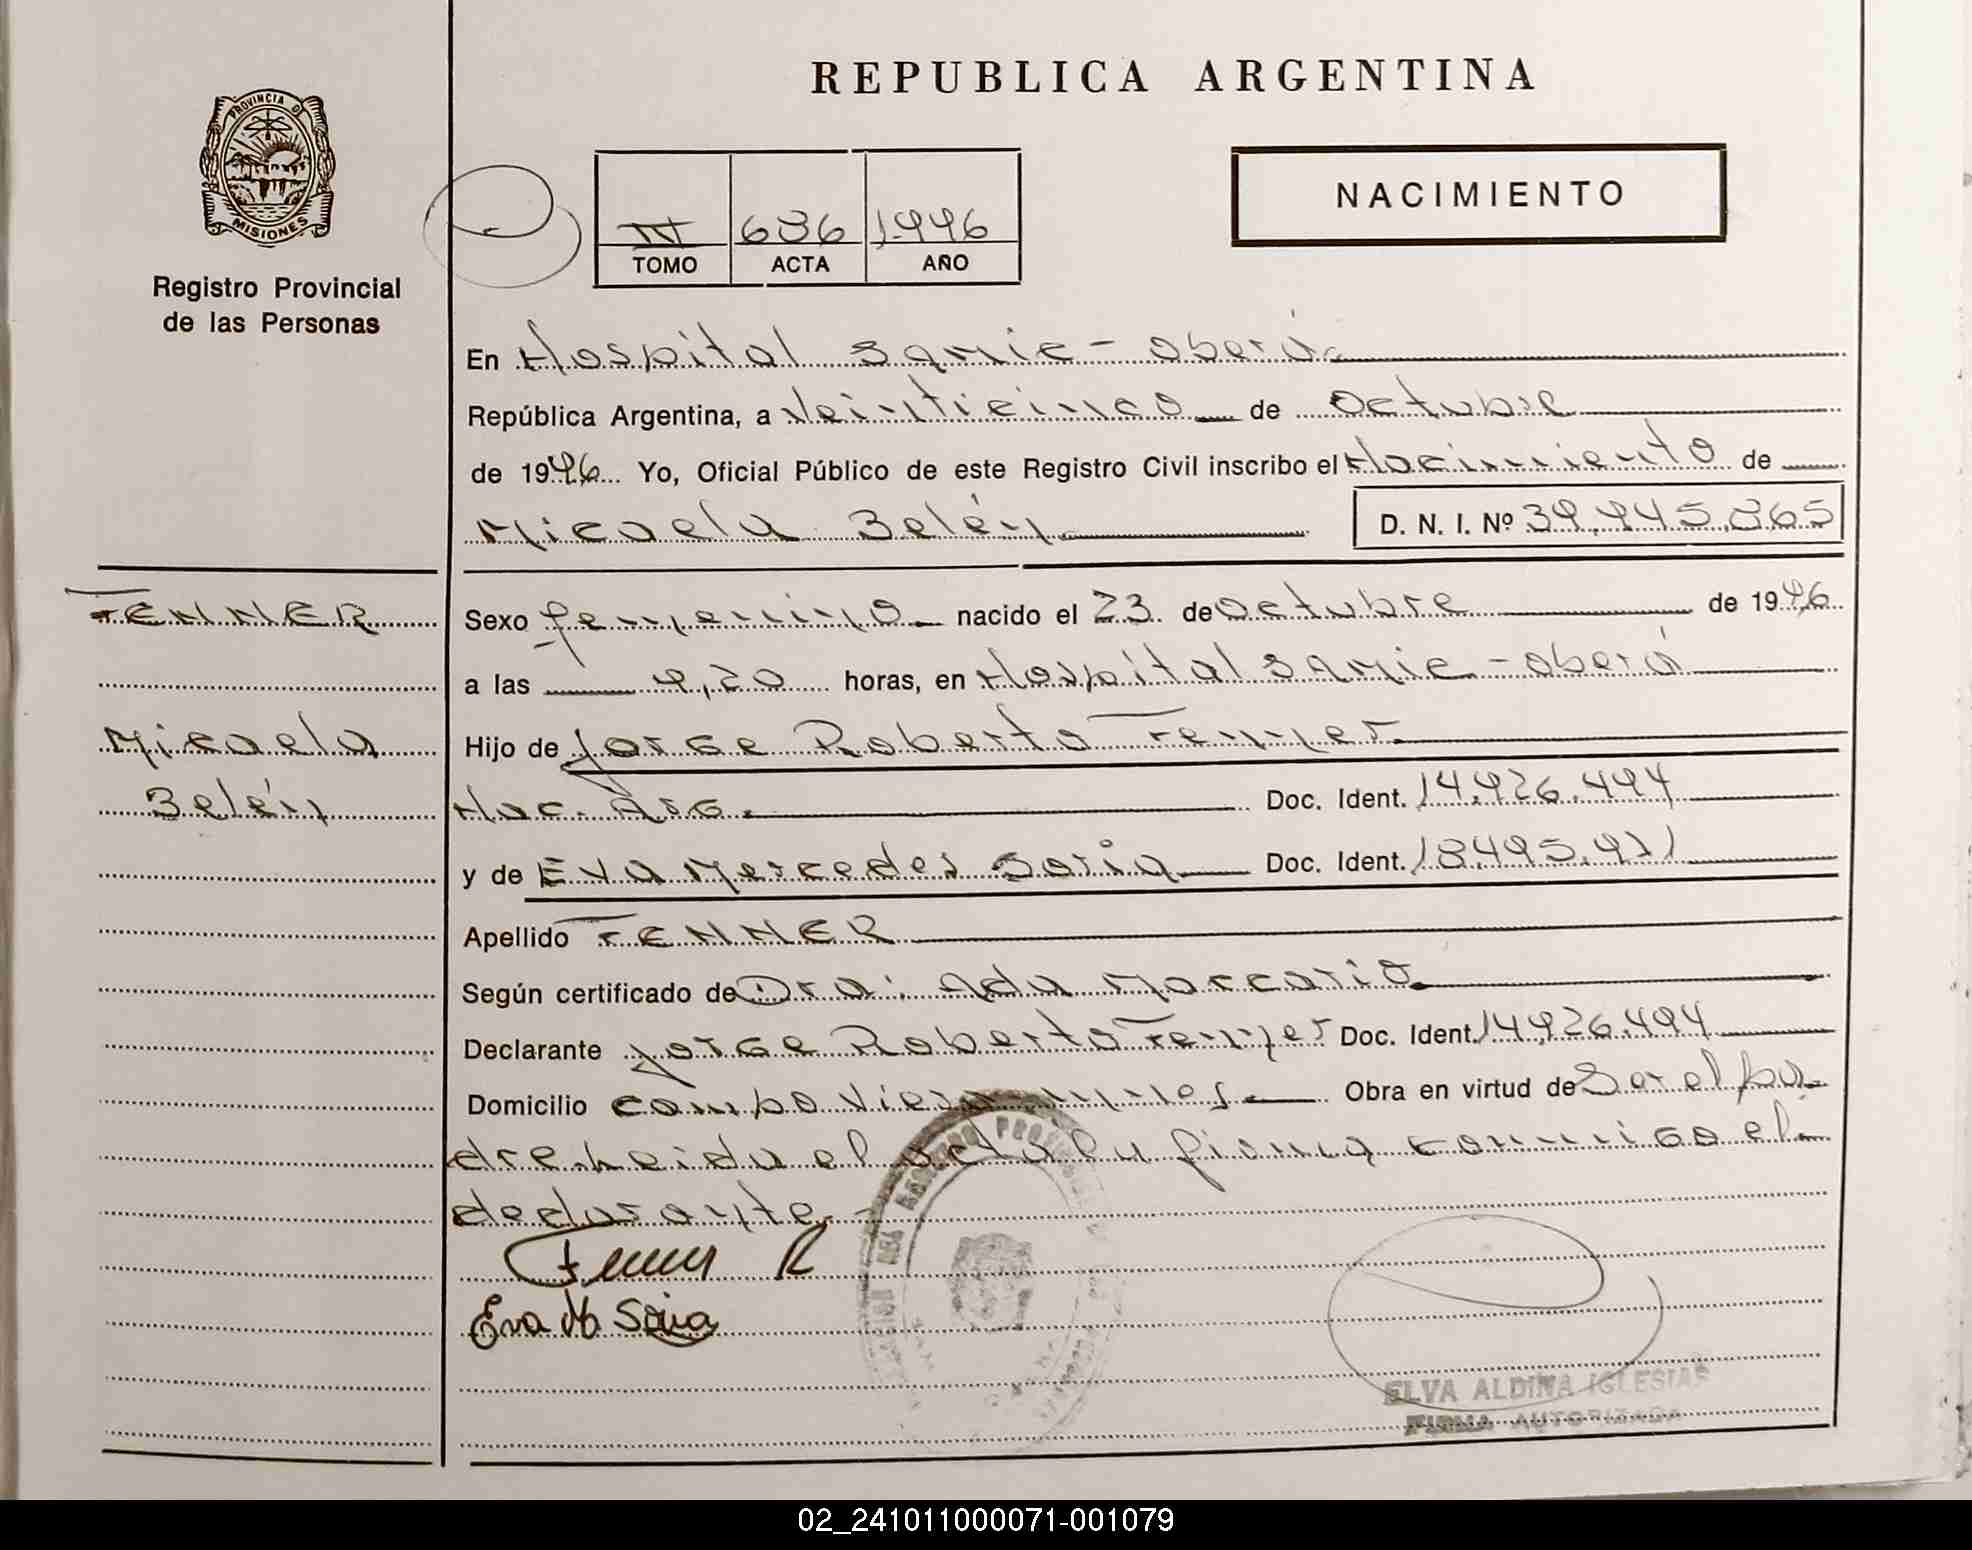 REPUBLICA ARGENTINA
PROVINCIA DE MISIONES
Registro Provincial
de las Personas
NACIMIENTO
III 636 1996
TOMO ACTA AÑO
En Hospital Samic - Oberá.
República Argentina, a Veinticinco de Octubre
de 1996 Yo, Oficial Público de este Registro Civil inscribo el Nacimiento de
Micaela Belén
D. N. I. Nº 39.945.865
FENNER
Micaela
Belén
Sexo femenino nacido el 23 de Octubre de 1996
a las 9,20 horas, en Hospital Samic - Oberá
Hijo de Jorge Roberto Fenner
Nac. Arg. Doc. Ident. 14.926.494
y de Eva Mercedes Soria Doc. Ident. 18.495.921
Apellido FENNER
Según certificado de Dra: Ada Maccario
Declarante Jorge Roberto Fenner Doc. Ident. 14.926.494
Domicilio Campo Viera Mnes. Obra en virtud de Ser el pa-
dre. Leida el acta la firma conmigo el
declarante -
Fenner R
Eva M Soria
ELVA ALDINA IGLESIAS
FIRMA AUTORIZADA
02_241011000071-001079